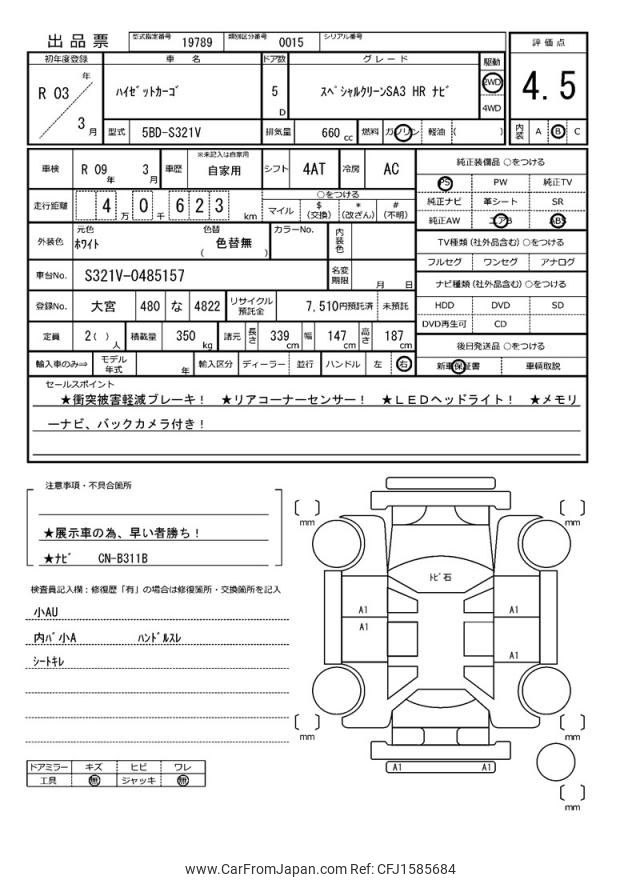 出品票 型式指定番号 19789 類別区分番号 0015 シリアル番号
初年度登録 車名 ドア数 グレード 駆動 評価点
R 03 年 3 月 ﾊｲｾﾞｯﾄｶｰｺﾞ 5 D ｽﾍﾟｼｬﾙｸﾘｰﾝSA3 HR ﾅﾋﾞ 2WD 4WD 4.5
型式 5BD-S321V 排気量 660 cc 燃料 ガソリン 軽油 ( ) 内装 A B C
車検 R 09 年 3 月 車歴 ※未記入は自家用 自家用 シフト 4AT 冷房 AC
走行距離 4 万 0 千 6 2 3 km ○をつける
マイル $ (交換) * (改ざん) # (不明)
外装色 元色 ﾎﾜｲﾄ 色替 ( 色替無 ) カラーNo. 内装色
車台No. S321V-0485157 名変期限 月 日
登録No. 大宮 480 な 4822 リサイクル預託金 7,510円預託済 未預託
定員 2( ) 人 積載量 350 kg 諸元 長さ 339 cm 幅 147 cm 高さ 187 cm
輸入車のみ⇒ モデル年式 年 輸入区分 ディーラー 並行 ハンドル 左 右
純正装備品 ○をつける
PS PW 純正TV
純正ナビ 革シート SR
純正AW エアB ABS
TV種類 (社外品含む) ○をつける
フルセグ ワンセグ アナログ
ナビ種類 (社外品含む) ○をつける
HDD DVD SD
DVD再生可 CD
後日発送品 ○をつける
新車保証書 車輌取説
セールスポイント
★衝突被害軽減ブレーキ！ ★リアコーナーセンサー！ ★ＬＥＤヘッドライト！ ★メモリ
ーナビ、バックカメラ付き！
注意事項・不具合箇所
★展示車の為、早い者勝ち！
★ﾅﾋﾞ CN-B311B
検査員記入欄：修復歴「有」の場合は修復箇所・交換箇所を記入
小AU
内ﾊﾞ小A ﾊﾝﾄﾞﾙｽﾚ
ｼｰﾄｷﾚ
ドアミラー キズ ヒビ ワレ
工具 無 ジャッキ 無
mm
mm
ﾄﾋﾞ石
A1
A1
A1
A1
mm
mm
A1 A1
mm
www.CarFromJapan.com Ref: CFJ1585684